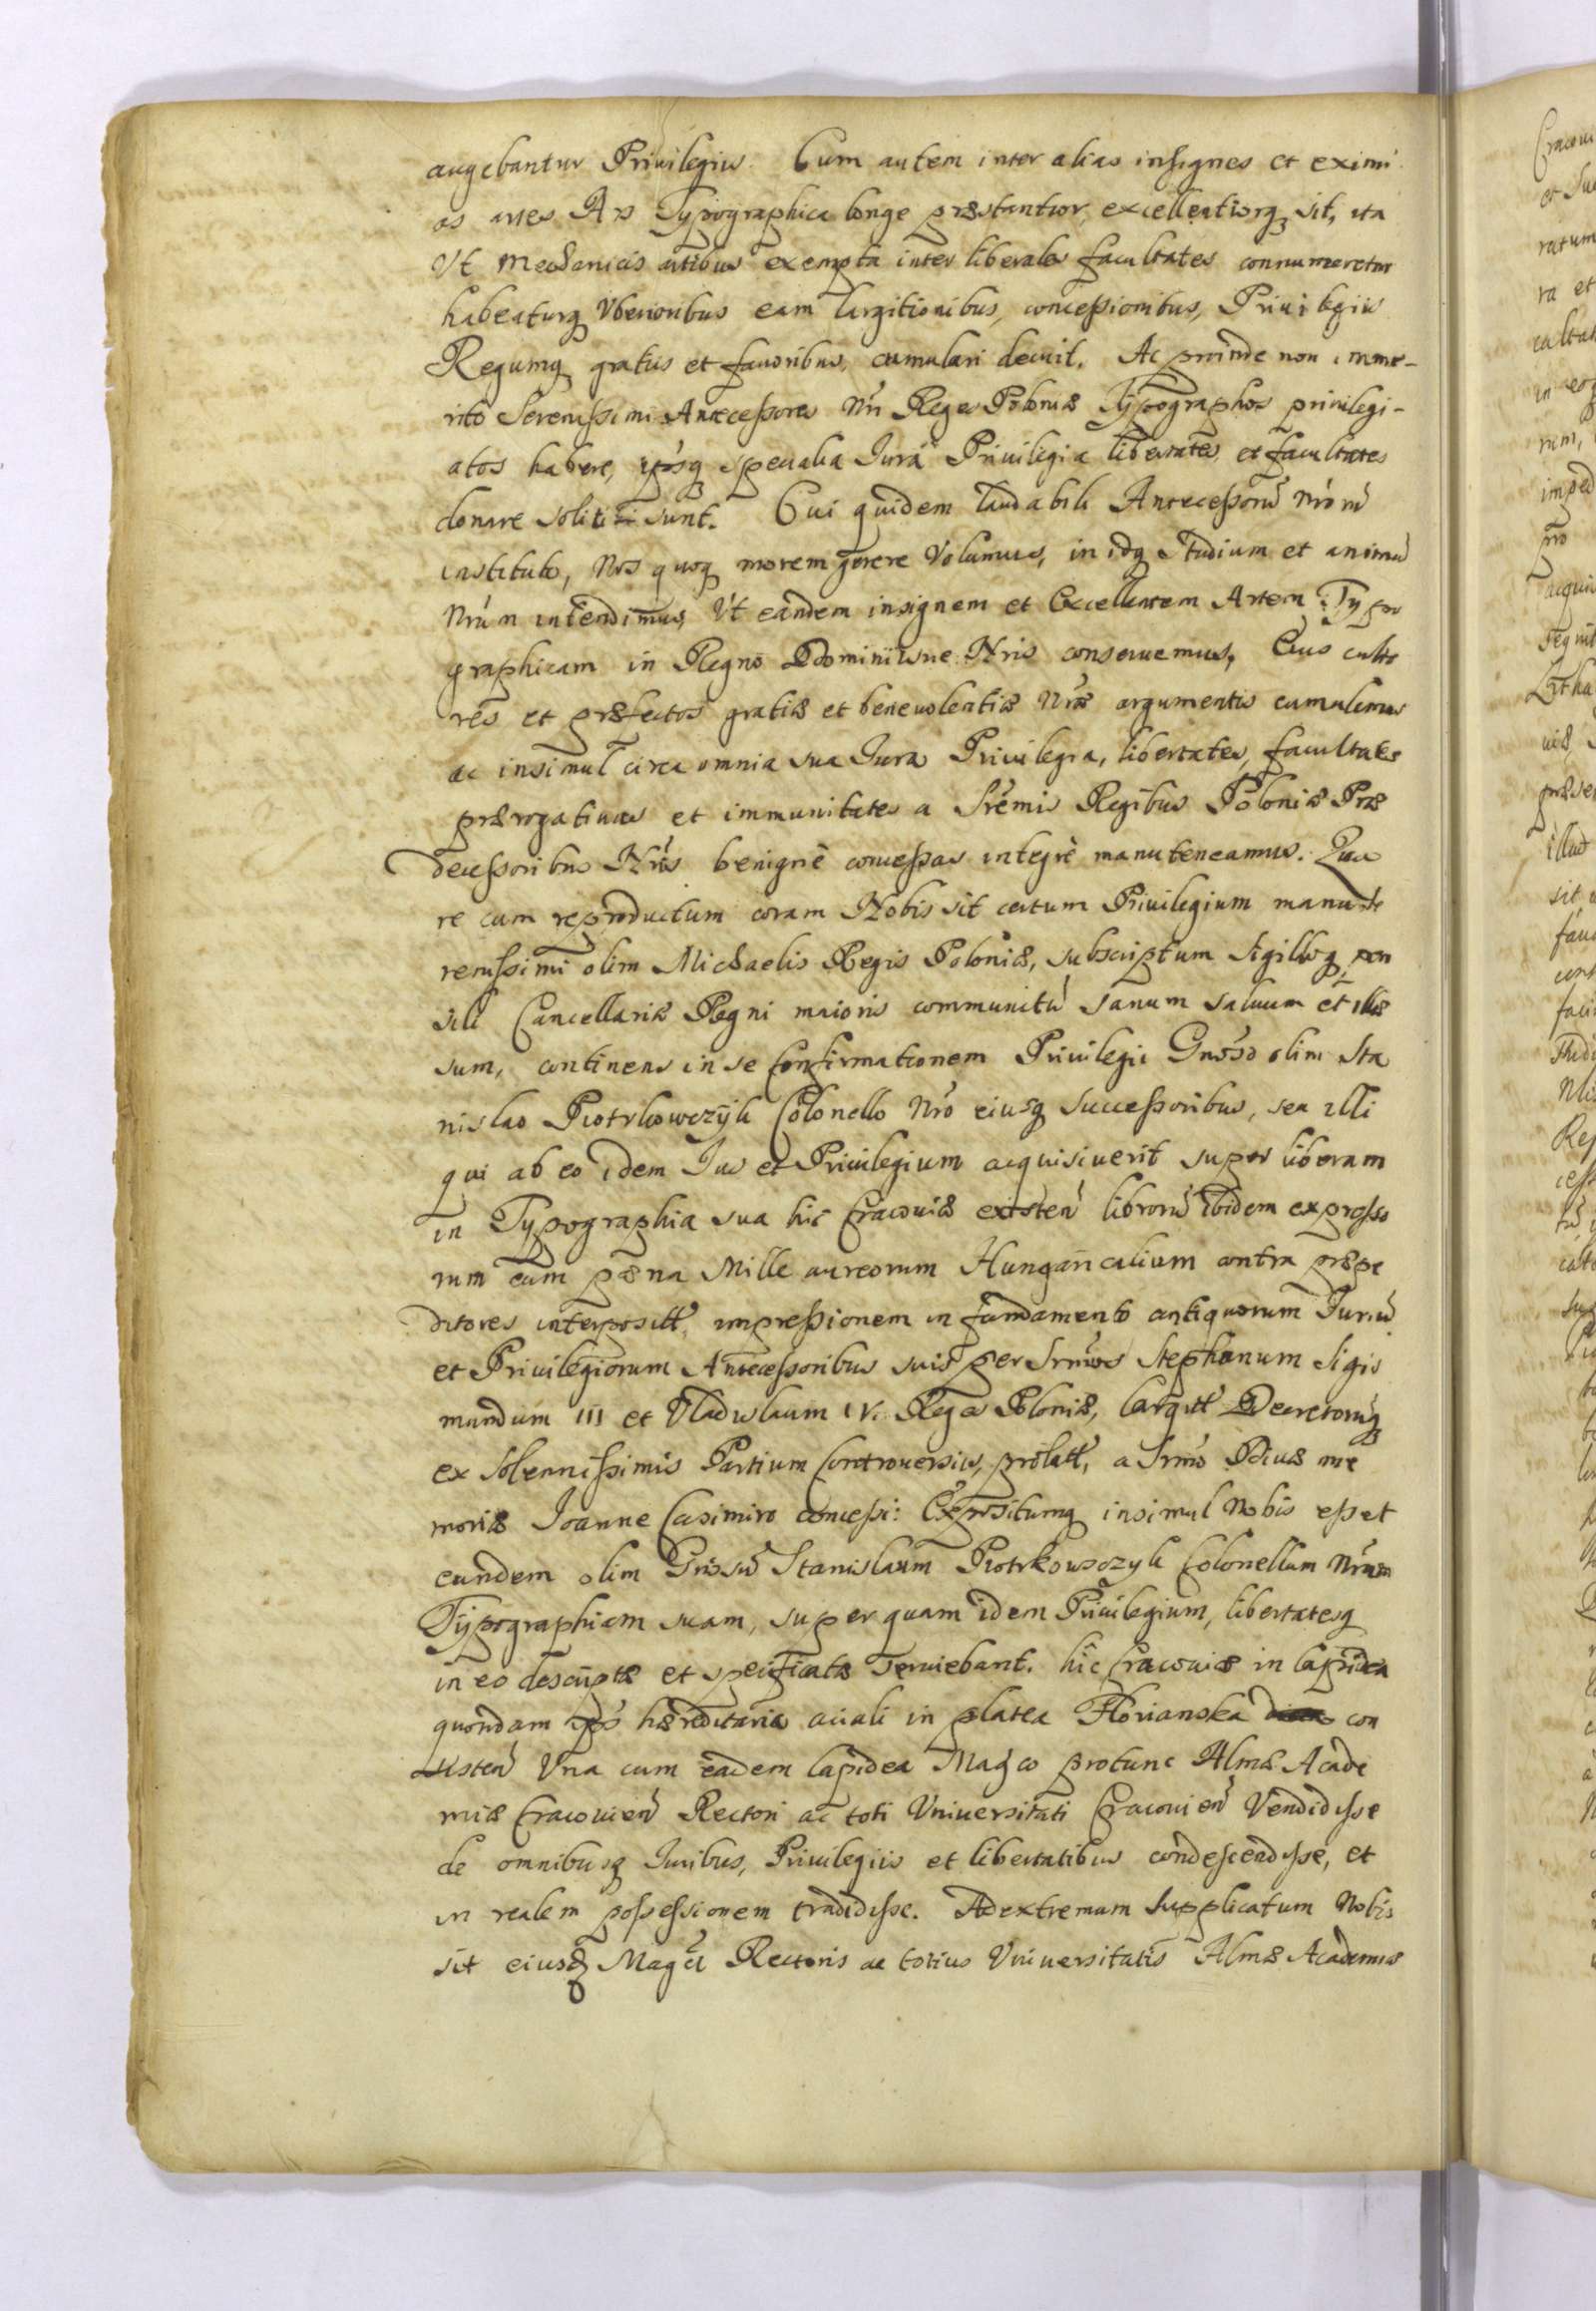 augebantur Priuilegijs. Cum autem inter alias insignes et eximi
as artes Ars Typographica longe præstantior, excellentiorq sit, ita
Vt Mechanicis artibus exempta inter liberales facultates connumeretur
habeaturq Vberioribus eam largitionibus, concessionibus, Priuilegiis
Regumq gratiis et fauoribus, cumulari decuit. Ac proinde non imme-
rito Serenissimi Antecessores Nri Reges Poloniæ Typographos priuilegi-
atos habere, ipsosq specialia Jura Priuilegia libertates et facultates
donare soliti sunt. Cui quidem laudabili Antecessorũ Nrorũ
instituto, Nos quoq morem gerere Volumus, in idq studium et animũ
Nrũm intendimus, Vt eandem insignem et Excellentem Artem Typo
graphicam in Regno Dominiisque Nris conseruemus, Eius culto
res et præfectos gratiæ et beneuolentiæ Nræ argumentis cumulemus
ac insimul circa omnia sua Jura Priuilegia, libertates, facultates
prærogatiuas et immunitates a Srêmis Regibus Poloniæ Præ
decessoribus Nris benignè concessas integrè manuteneamus. Qua
re cum reproductum coram Nobis sit certum Priuilegium manu Se
renissimi olim Michaelis Regis Poloniæ, subscriptum Sigilloq pen
sili Cancellariæ Regni maioris communitũ sanum saluum et illæ
sum, continens in se Confirmationem Priuilegii Gnoso olim Sta
nislao Piotrkowczyk Colonello Nro eiusq Successoribus, seu illi
qui ab eo idem Jus et Priuilegium acquisiuerit super liberam
in Typographia sua hic Cracouiæ existeñ librorũ ibidem expresso
rum cum pœna Mille aureorum Hungaricalium contra præpe
ditores interposit, impressionem in fundamento antiquorum Juriũ
et Priuilegiorum Antecessoribus suis per Srmos Stephanum Sigis
mundum III et Vladislaum IV. Reges Poloniæ, largit Decretorũq
ex solennissimis Partium Controuersiis, prolat, a Srmo Diuæ me
moriæ Joanne Casimiro concess: Expositumq insimul Nobis esset
eundem olim Gnosũ Stanislaum Piotrkowczyk Colonellum Nrum
Typographiam suam, super quam idem Priuilegium, libertatesq
in eo descriptæ et specificatæ seruiebant. hic Cracouiæ in lapidea
quondam ipsius hæreditaria auali in platea Florianska con
sisteñ Vna cum eadem lapidea Magco protunc Almæ Acade
miæ Cracouieñ Rectori ac toti Vniuersitati Cracouieñ Vendidisse
de omnibusq Juribus, Priuilegiis et libertatibus condescendisse, et
in realem possessionem tradidisse. Ad extremum supplicatum Nobis
sit eiusd Magci Rectoris ac totius Vniuersitatis Almæ Academiæ